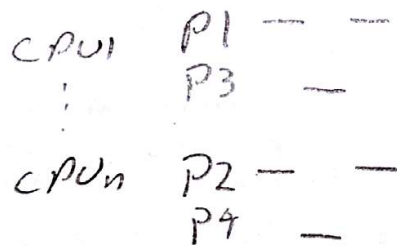 CPU1 P1
P3
CPUn P2
P4